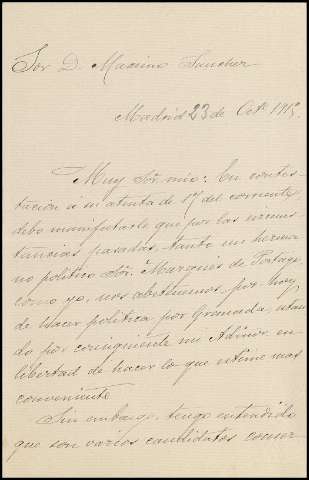 Sor. D. Maximo Sanchez
Madrid 23 de Oct. 1913.
Muy Sor. mio: En contes-
tacion á su atenta de 17 del corriente,
debo manifestarle que por las circuns-
tancias pasadas, tanto mi herma-
no politico Sor. Marqués de Portago
como yo, nos abstenemos, por hoy,
de hacer politica por Granada, estan-
do por consiguiente mi Admor. en
libertad de hacer lo que estime mas
conveniente
Sin embargo, tengo entendido
que son varios candidatos conser-